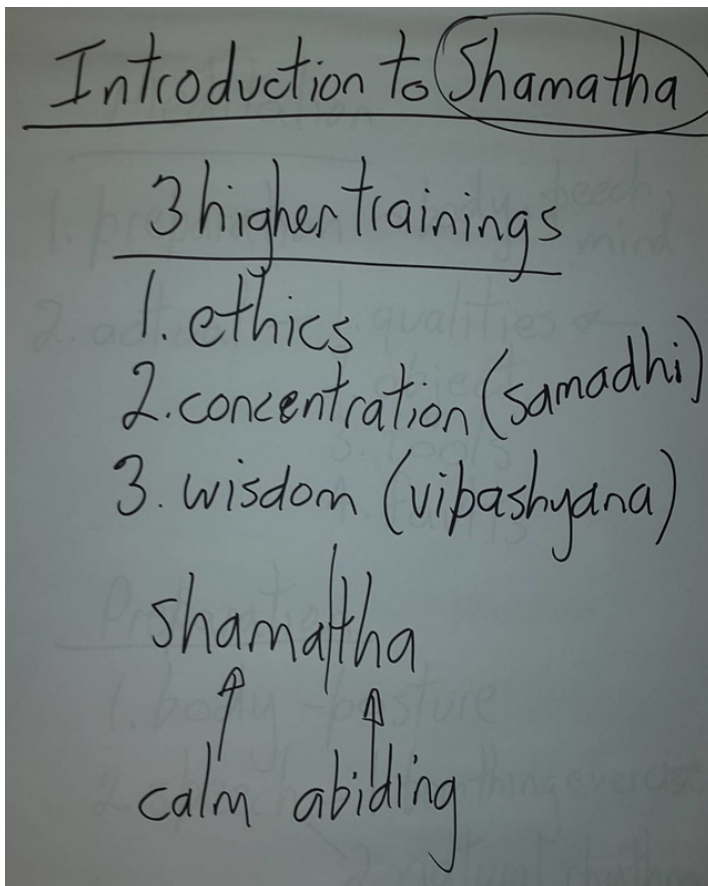 Introduction to Shamatha
3 higher trainings
1. ethics
2. concentration (samadhi)
3. wisdom (vipashyana)
shama|tha
calm abiding